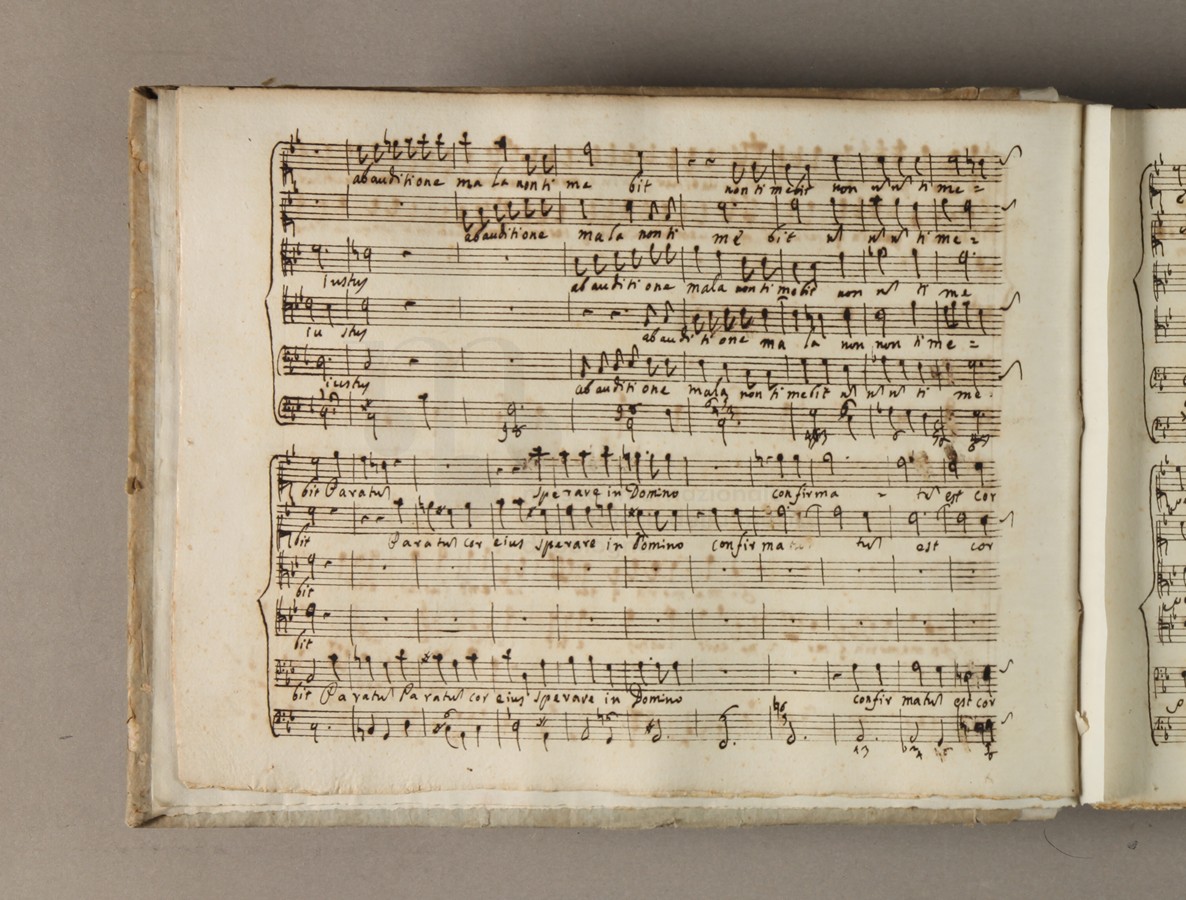 ab auditione ma la non ti me bit non ti mebit non ti me =
ab auditione mala non ti me bit ti me =
iustus ab auditi one mala non ti mebit non ti me
iu stus ab audi ti one ma la non non ti me =
iustus ab auditi one mala non ti mebit ti me
bit Paratus sperare in Domino confirma - tus est cor
bit Paratus cor eius sperare in Domino confir ma tus est cor
bit
bit
bit Paratus Paratus cor eius sperare in Domino confir matus est cor